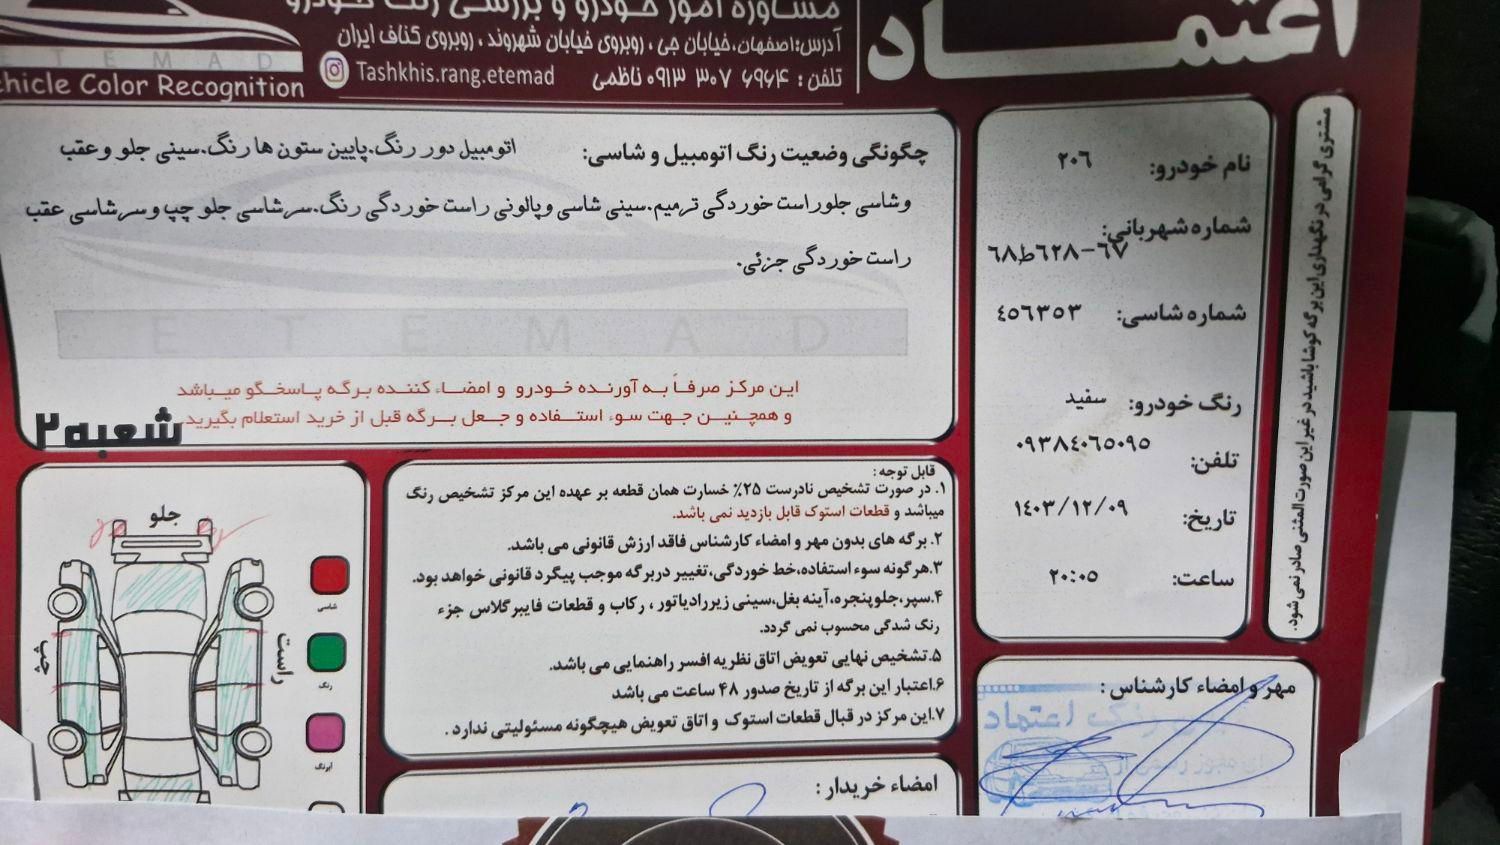 اعتمـــاد
مشاوره امور خودرو و بررسی رنگ خودرو
آدرس:اصفهان،خیابان جی ، روبروی خیابان شهروند ، روبروی کناف ایران
تلفن : ۰۹۱۳ ۳۰۷ ۶۹۶۴ ناظمی
Tashkhis.rang.etemad
E T E M A D
Vehicle Color Recognition
مشتری گرامی در نگهداری این برگه کوشا باشید در غیر این صورت المثنی صادر نمی شود.
نام خودرو: ۲۰۶
شماره شهربانی: ۶۸ط۶۲۸-۶۷
شماره شاسی: ٤٥٦٣٥٣
رنگ خودرو: سفید
تلفن: ۰۹۳۸٤۰٦٥۰۹٥
تاریخ: ۱٤۰۳/۱۲/۰۹
ساعت: ۲۰:۰٥
چگونگی وضعیت رنگ اتومبیل و شاسی: اتومبیل دور رنگ.پایین ستون ها رنگ.سینی جلو و عقب
و شاسی جلوراست خوردگی ترمیم.سینی شاسی و پالونی راست خوردگی رنگ.سرشاسی جلو چپ و سرشاسی عقب
راست خوردگی جزئی.
E T E M A D
این مرکز صرفاً به آورنده خودرو و امضاء کننده برگه پاسخگو میباشد
و همچنین جهت سوء استفاده و جعل برگه قبل از خرید استعلام بگیرید.
شعبه۲
قابل توجه :
۱. در صورت تشخیص نادرست ۲۵٪ خسارت همان قطعه بر عهده این مرکز تشخیص رنگ
میباشد و قطعات استوک قابل بازدید نمی باشد.
۲. برگه های بدون مهر و امضاء کارشناس فاقد ارزش قانونی می باشد.
۳.هرگونه سوء استفاده،خط خوردگی،تغییر دربرگه موجب پیگرد قانونی خواهد بود.
۴.سپر،جلوپنجره،آینه بغل،سینی زیررادیاتور ، رکاب و قطعات فایبرگلاس جزء
رنگ شدگی محسوب نمی گردد.
۵.تشخیص نهایی تعویض اتاق نظریه افسر راهنمایی می باشد.
۶.اعتبار این برگه از تاریخ صدور ۴۸ ساعت می باشد
۷.این مرکز در قبال قطعات استوک و اتاق تعویض هیچگونه مسئولیتی ندارد .
جلو
راست
چپ
شاسی
رنگ
آبرنگ
مهر و امضاء کارشناس :
امضاء خریدار :